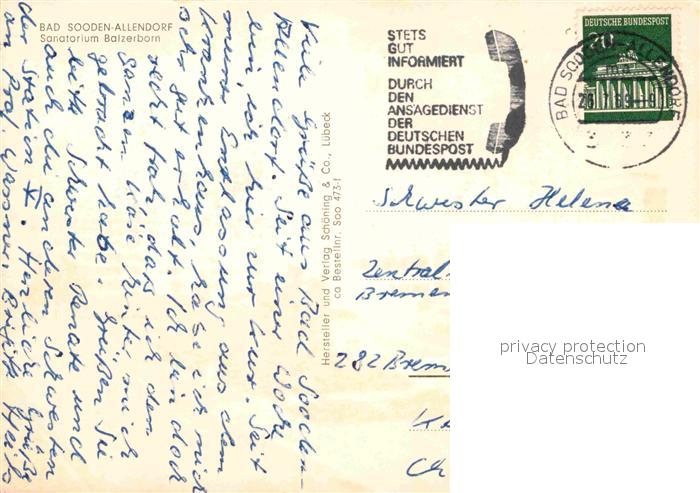 BAD SOODEN-ALLENDORF
Sanatorium Balzerborn
Viele Grüße aus Bad Sooden-
Allendorf. Seit einer Woche
bin ich hier zur Kur. Seit
meiner Entlassung aus dem
Krankenhaus, habe ich mich
sehr gut erholt. Ich bin doch
recht froh, daß ich den
ganzen hinter mich
gebracht habe. Grüßen Sie
bitte Schwester Renate und
auch die anderen Schwestern
der Station Herzliche Grüße
an Prof.
Hersteller und Verlag Schöning & Co., Lübeck
ca Bestellnr. Soo 473-1
STETS
GUT
INFORMIERT
DURCH
DEN
ANSAGEDIENST
DER
DEUTSCHEN
BUNDESPOST
DEUTSCHE BUNDESPOST
20
BAD SOODEN-ALLENDORF
Schwester Helena
Zentral
Bremen
282 Brem
privacy protection
Datenschutz